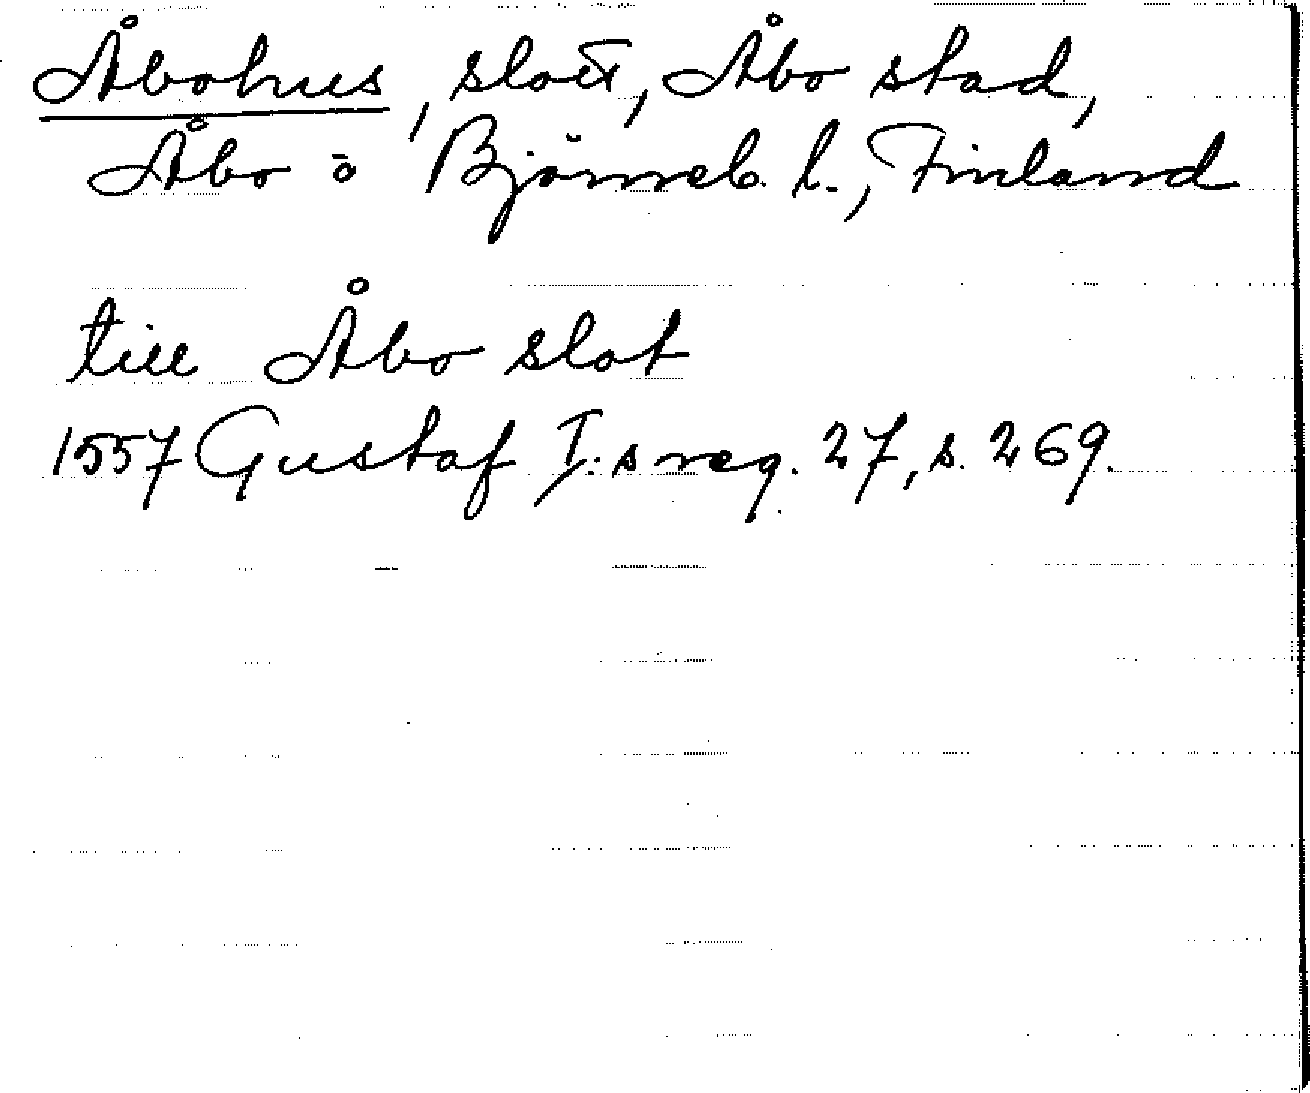 Åbohus, slott, Åbo stad,
Åbo o Björneb. l., Finland
till Åbo slot
1557 Gustaf I:s reg. 27, s. 269.